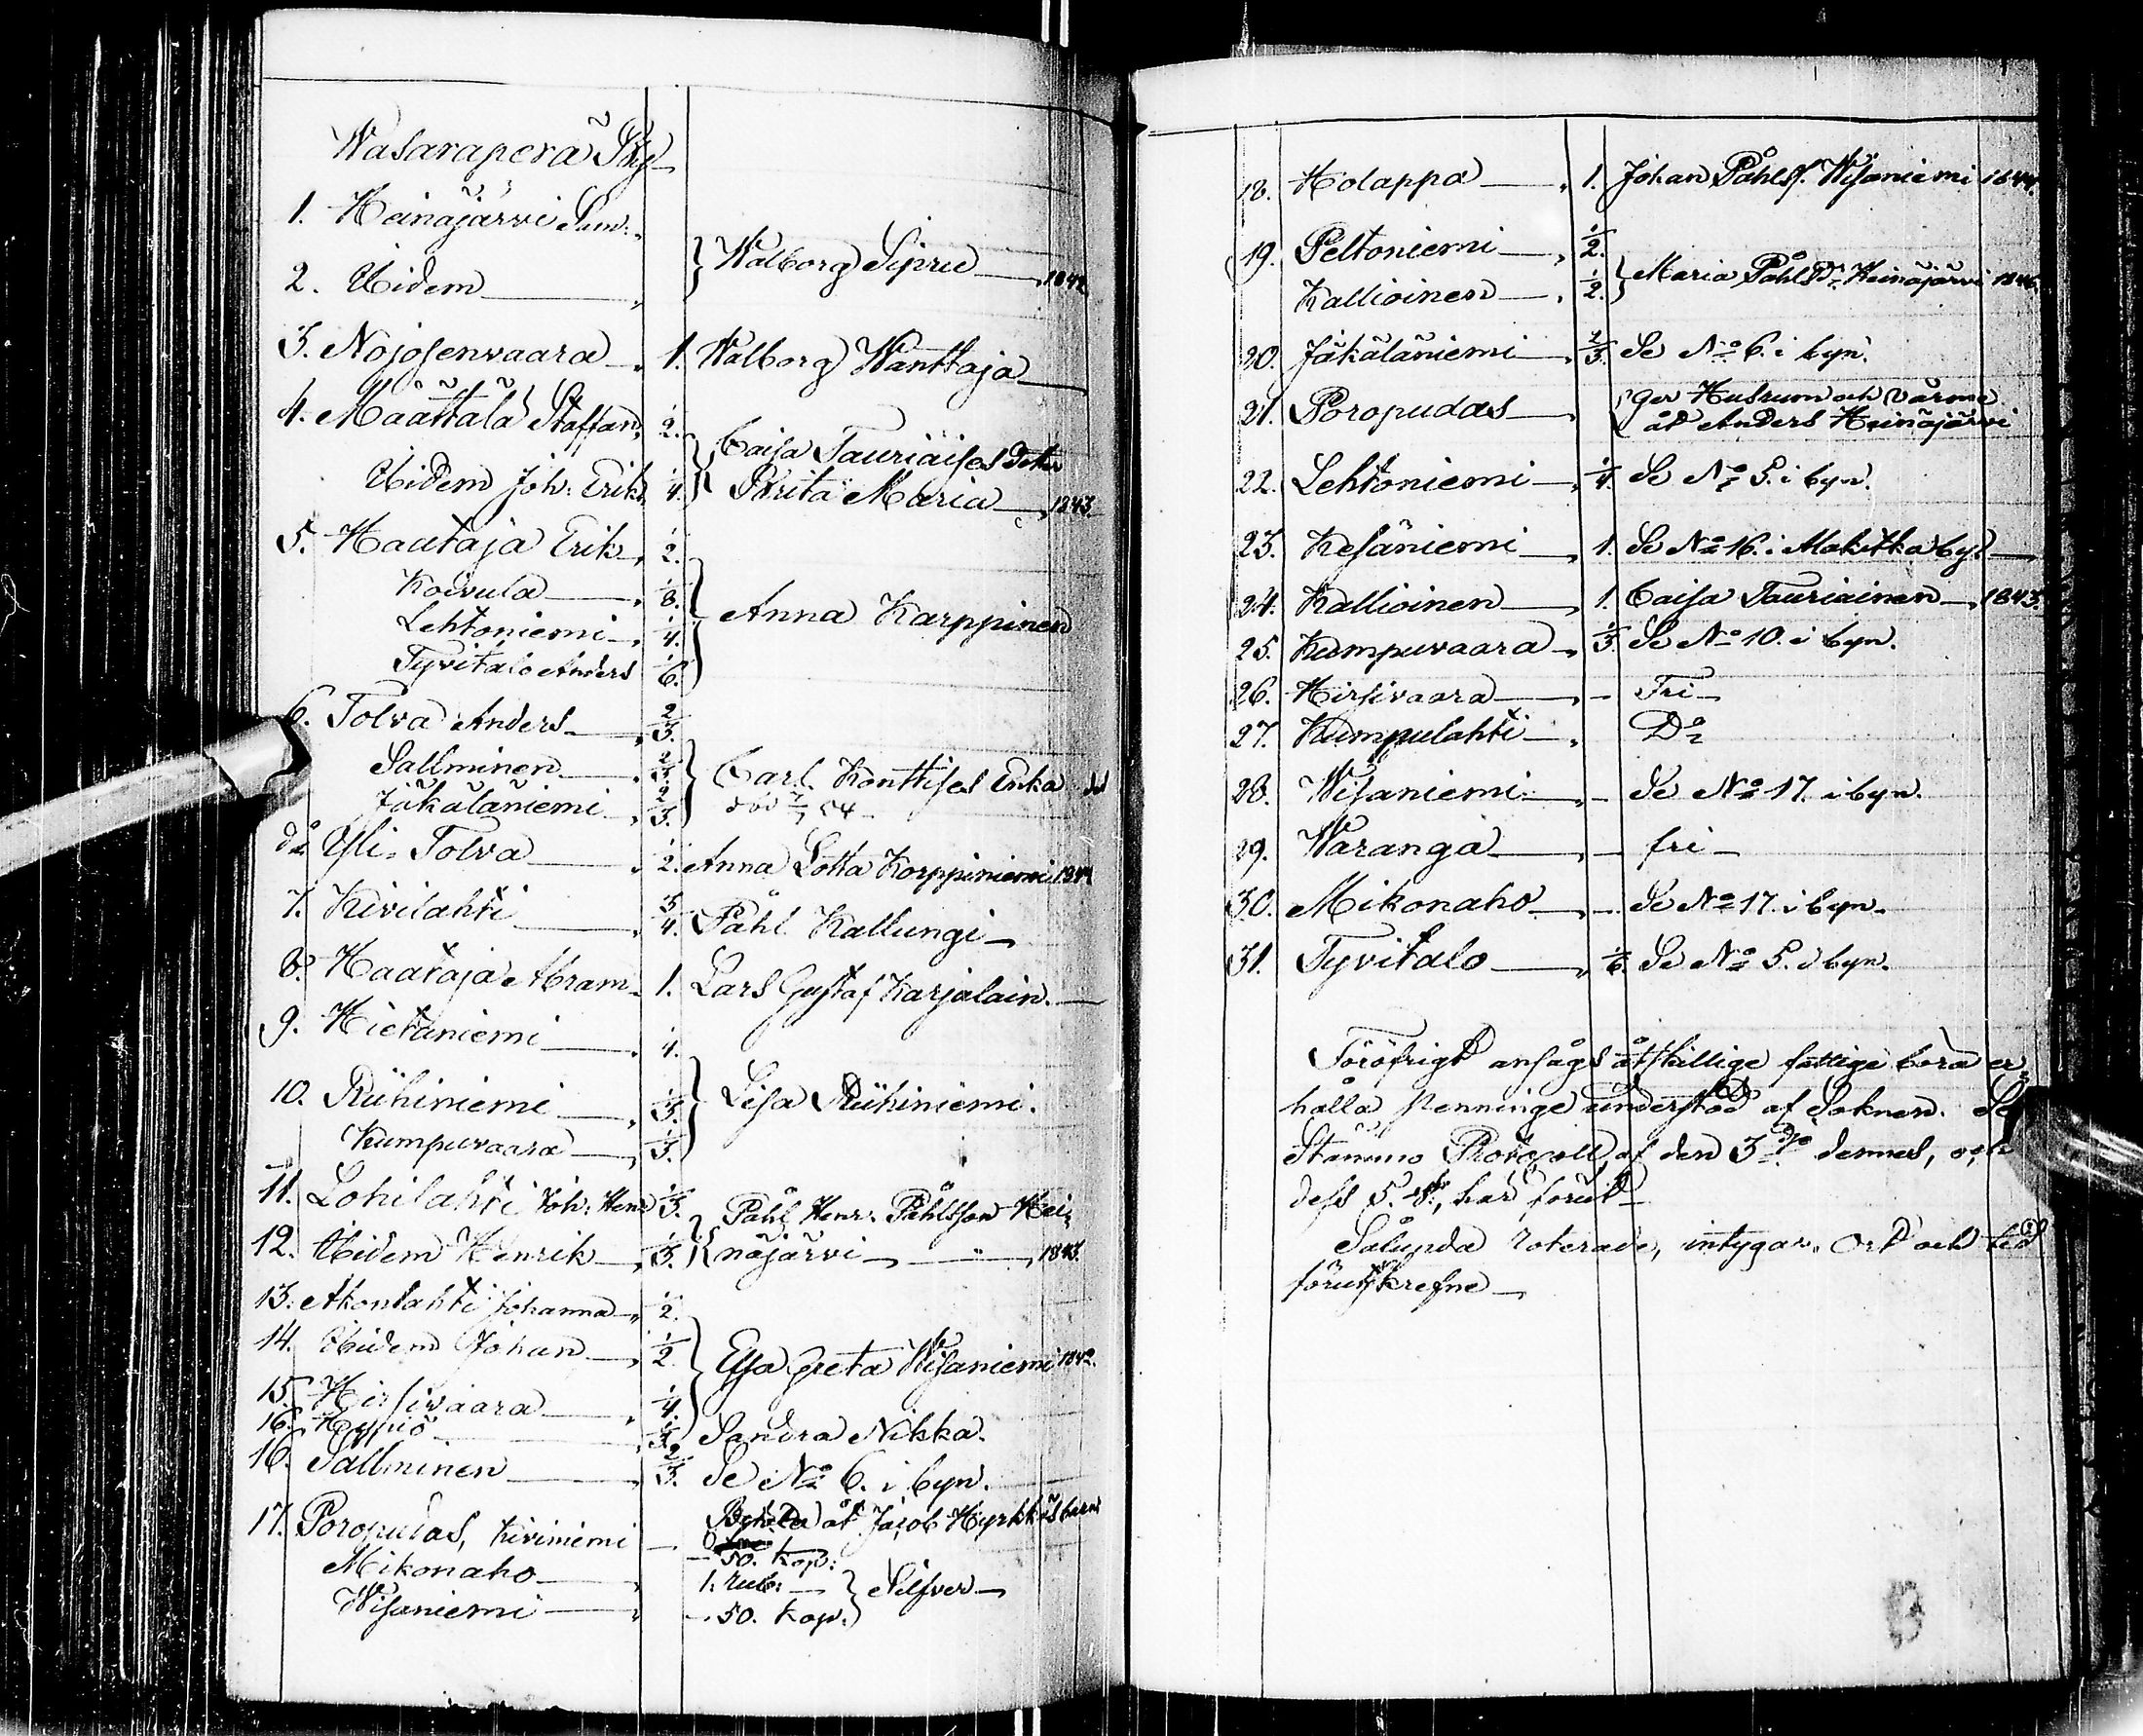 Wasaraperä By
1. Heinäjärvi Sam:
2. Ibidem
} Walborg Sipru 1842
3. Nojosenvaara 1. Walborg Wanttaja
4. Määttälä Staffan 1/2.
Ibidem Joh: Erik 1/4.
} Caisa Tauriaises dotter
Brita Maria 1843.
5. Hautaja Erik 1/2.
Koivula 1/8.
Lehtoniemi 1/4.
Tyvitalo Anders 1/6.
} Anna Karppinen
6. Tolva Anders 2/3.
Sallminen 2/3.
Jäkäläniemi 2/3.
} Carl Konttises Enka
do Yli-Tolva 1/2. Anna Lotta Korppiniemi 1844
7. Kivilahti 3/4. Påhl Kallungi
8. Haataja Abram 1. Lars Gustaf Karjalain.
9. Hietaniemi 1/4.
10. Riihiniemi 1/3.
Kumpuvaara 1/3.
} Lisa Riihiniemi.
11. Lohilahti Joh: Henr 1/3.
12. Ibidem Henrik 1/3.
} Påhl Henr. Påhlsson Hei-
näjärvi " 1843.
13. Akonlahti Johanna 1/2.
14. Ibidem Johan 1/2.
15. Hirsivaara 1/4.
} Elsa Greta Wisaniemi 1842.
16. Hyppiö 1/3. Sandra Nikka.
16. Sallminen 2/3. Se No 6. i byn.
17. Poropudas, Kiviniemi åt Jacob Hyrkkäs barn
50. Kop:
Mikonaho 1: Rub:
Wisaniemi 50. Kop.
} Silfver
18. Holappa 1. Johan Påhlss. Wisaniemi 1844.
19. Peltoniemi 1/2.
Kallioinen 1/2.
} Maria Påhls Dr Heinäjärvi 1846.
20. Jäkäläniemi 2/3. Se No 6. i byn.
21. Poropudas { ger Husrum och värme
åt Anders Heinäjärvi
22. Lehtoniemi 1/4. Se No 5. i byn.
23. Kesäniemi 1. Se No 16. i Alakitka by
24. Kallioinen 1. Caisa Tauriainen 1843.
25. Kumpuvaara 1/3. Se No 10. i byn.
26. Hirsivaara - Fri
27. Kumpulahti Do
28. Wisaniemi - Se No 17. i byn.
29. Waranga - fri
30. Mikonaho - Se No 17. i byn.
31. Tyvitalo 1/6. Se No 5. i byn.
Föröfrigt ansågs åtskillige fattige böra er-
hålla Penninge understöd af Soknen. Se
Stämmo Protocoll af den 3 dennes, och
dess 5. §, här förut
Sålunda roterade, intygar. Ort och tid
förutskrefne